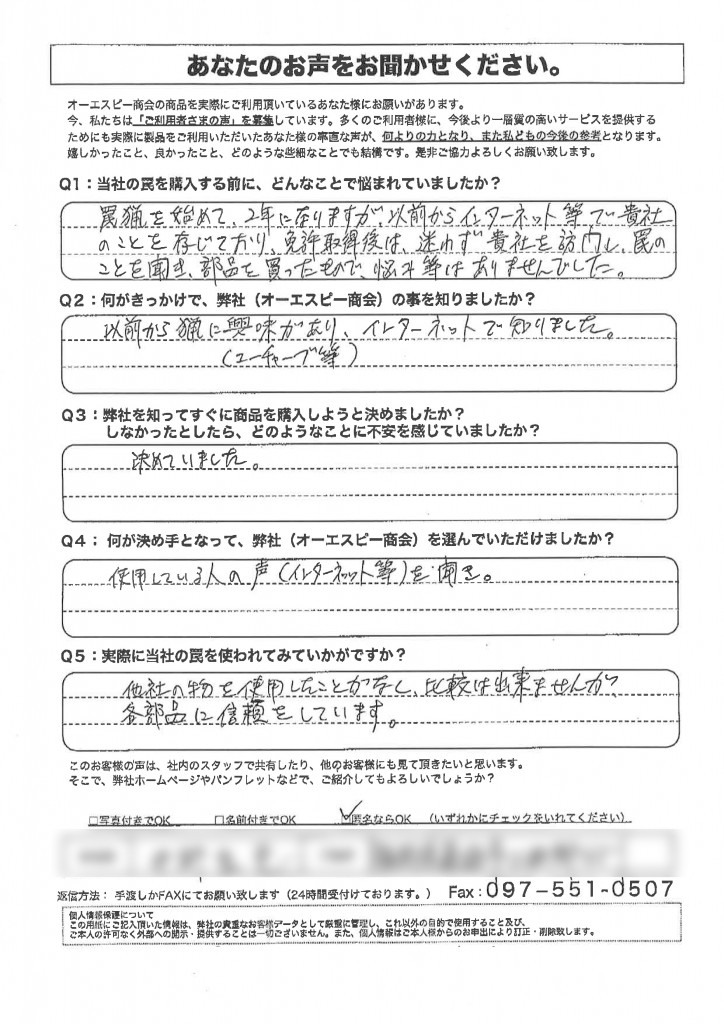 あなたのお声をお聞かせください。
オーエスピー商会の商品を実際にご利用頂いているあなた様にお願いがあります。
今、私たちは「ご利用者さまの声」を募集しています。多くのご利用者様に、今後より一層質の高いサービスを提供する
ためにも実際に製品をご利用いただいたあなた様の率直な声が、何よりの力となり、また私どもの今後の参考となります。
嬉しかったこと、良かったこと、どのような些細なことでも結構です。是非ご協力よろしくお願い致します。
Q1：当社の罠を購入する前に、どんなことで悩まれていましたか？
罠猟を始めて、2年になりますが、以前からインターネット等で貴社
のことを存じており、免許取得後は、迷わず貴社を訪問し、罠の
ことを聞き、部品を買ったもので、悩み等はありませんでした。
Q2：何がきっかけで、弊社（オーエスピー商会）の事を知りましたか？
以前から猟に興味があり、インターネットで知りました。
（ユーチューブ等）
Q3：弊社を知ってすぐに商品を購入しようと決めましたか？
しなかったとしたら、どのようなことに不安を感じていましたか？
決めていました。
Q4；何が決め手となって、弊社（オーエスピー商会）を選んでいただけましたか？
使用している人の声（インターネット等）を聞き。
Q5：実際に当社の罠を使われてみていかがですか？
他社の物を使用したことがなし、比較は出来ませんが、
各部品に信頼をしています。
このお客様の声は、社内のスタッフで共有したり、他のお客様にも見て頂きたいと思います。
そこで、弊社ホームページやパンフレットなどで、ご紹介してもよろしいでしょうか？
□写真付きでOK □名前付きでOK ☑匿名ならOK （いずれかにチェックをいれてください）
返信方法：手渡しかFAXにてお願い致します（24時間受付けております。） Fax：097-551-0507
個人情報保護について
この用紙にご記入頂いた情報は、弊社の貴重なお客様データとして厳重に管理し、これ以外の目的で使用すること及び、
ご本人の許可なく外部への開示・提供することは一切ございません。また、個人情報はご本人様からのお申出により訂正・削除致します。